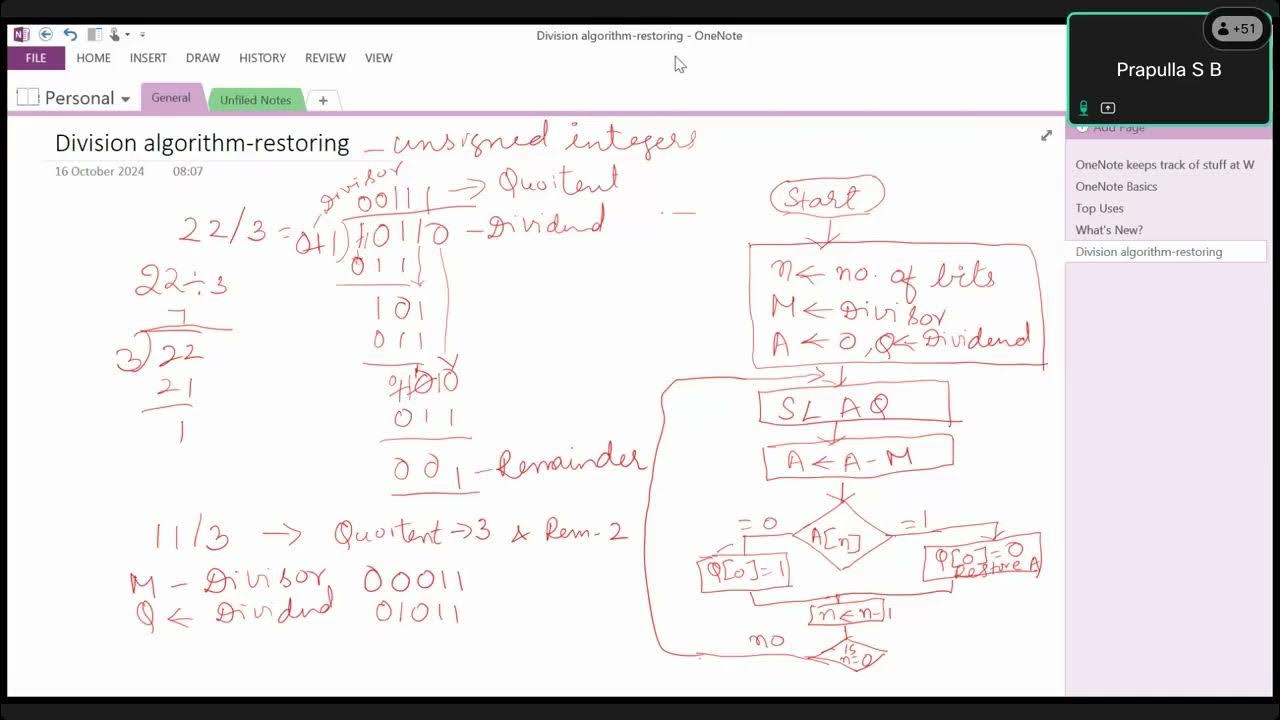 Division algorithm-restoring - OneNote
+51
Prapulla S B
FILE HOME INSERT DRAW HISTORY REVIEW VIEW
Personal General Unfiled Notes +
Add Page
OneNote keeps track of stuff at W
OneNote Basics
Top Uses
What's New?
Division algorithm-restoring
Division algorithm-restoring - unsigned integers
16 October 2024 08:07
Divisor
00111 → Quoitent
22/3 = 011)10110 - Dividend
011
101
011
1010
011
001 - Remainder
22÷3
7
3)22
21
1
11/3 → Quoitent → 3 & Rem - 2
M - Divisor 00011
Q ← Dividend 01011
Start
n ← no. of bits
M ← Divisor
A ← 0, Q ← Dividend
SL AQ
A ← A - M
= 0 A[n] = 1
Q[0]=1 Q[0]=0
Restore A
n ← n-1
no is
n=0